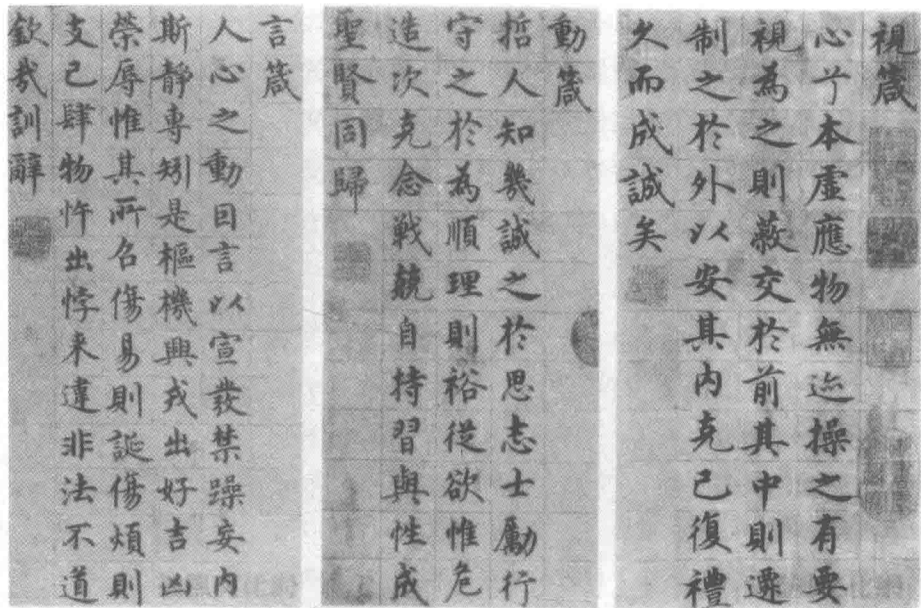 視箴
心兮本虛應物無迹操之有要
視為之則蔽交於前其中則遷
制之於外以安其內克己復禮
久而成誠矣
動箴
哲人知幾誠之於思志士勵行
守之於為順理則裕從欲惟危
造次克念戰兢自持習與性成
聖賢同歸
言箴
人心之動因言以宣發禁躁妄內
斯靜專矧是樞機興戎出好吉凶
榮辱惟其所召傷易則誕傷煩則
支己肆物忤出悖來違非法不道
欽哉訓辭